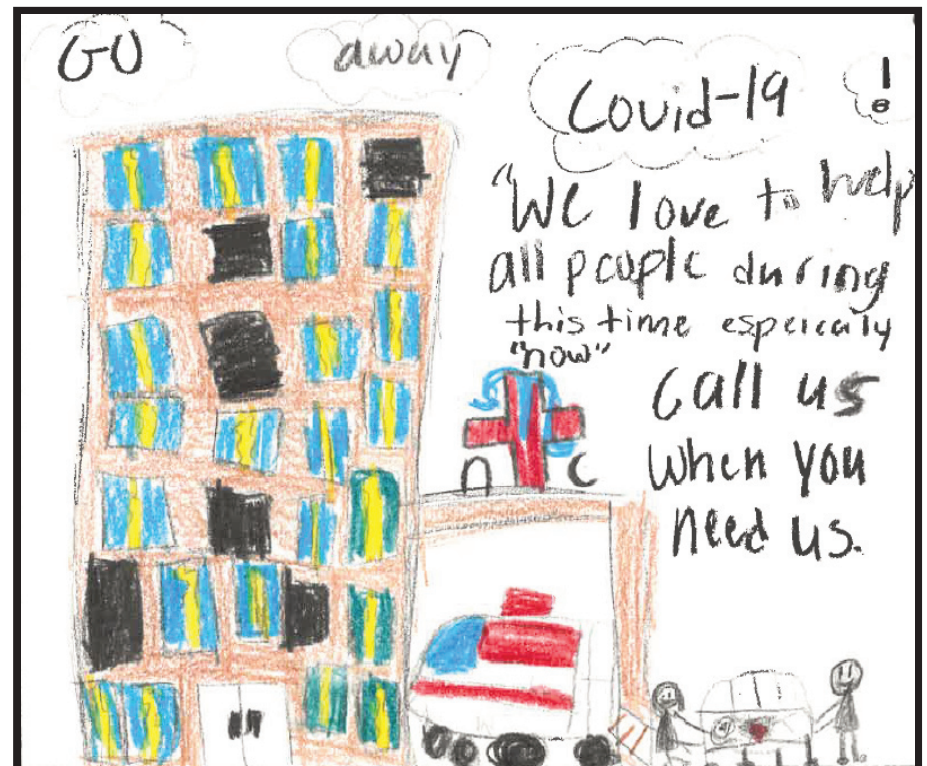 GO away Covid-19 !
"We love to help
all people during
this time especially
"now"
Call us
when you
need us.